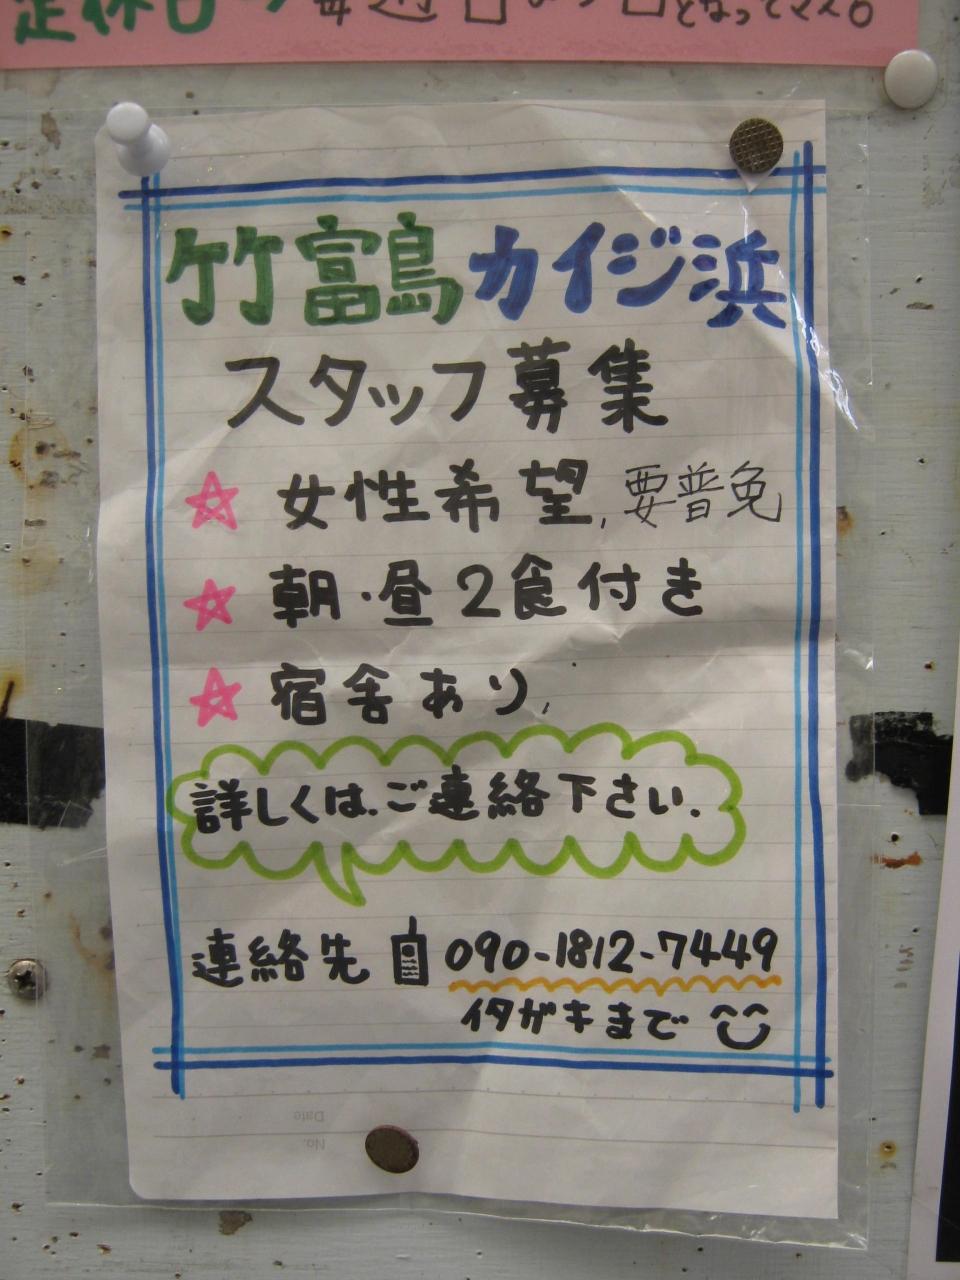 定休日
となってマス。
竹富島カイジ浜
スタッフ募集
☆ 女性希望、要普免
☆ 朝・昼2食付き
☆ 宿舎あり、
詳しくは、ご連絡下さい。
連絡先 090-1812-7449
イタガキまで
Date
No.